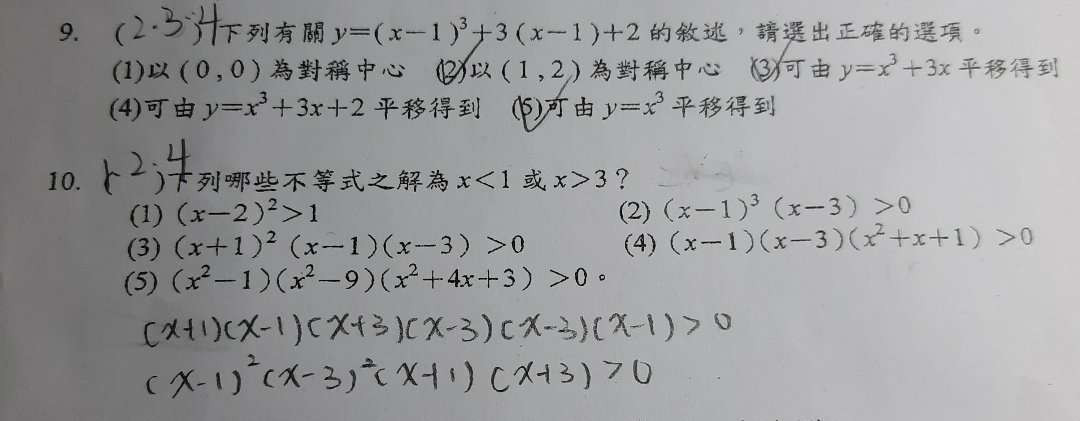 9. (2.3.4)下列有關 y=(x-1)³+3(x-1)+2 的敘述，請選出正確的選項。
(1)以(0,0)為對稱中心 (2)以(1,2)為對稱中心 (3)可由 y=x³+3x 平移得到
(4)可由 y=x³+3x+2 平移得到 (5)可由 y=x³ 平移得到
10. (2.4)下列哪些不等式之解為 x<1 或 x>3？
(1) (x-2)²>1 (2) (x-1)³(x-3)>0
(3) (x+1)²(x-1)(x-3)>0 (4) (x-1)(x-3)(x²+x+1)>0
(5) (x²-1)(x²-9)(x²+4x+3)>0。
(x+1)(x-1)(x+3)(x-3)(x-3)(x-1)>0
(x-1)²(x-3)²(x+1)(x+3)>0